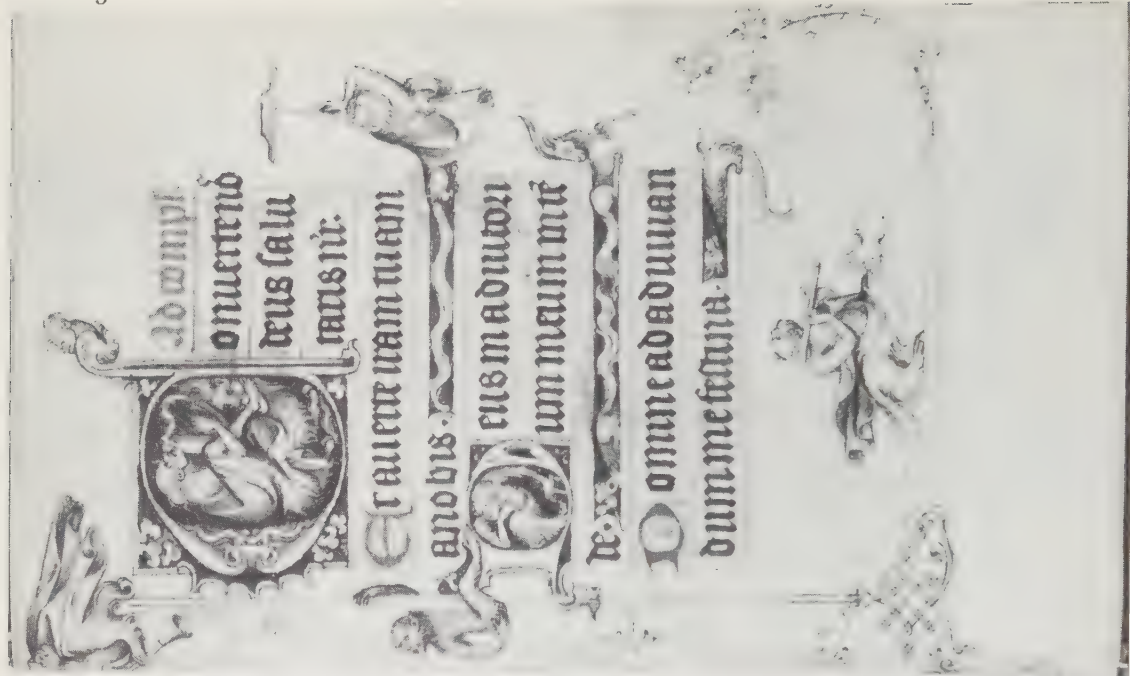 Ad compl'
Conuerte nos
deus salu
taris nr̄.
Et auerte iram tuam
a nobis.
Deus in adiutori
um meum intē
de.
Domine ad adiuuan
dum me festina.